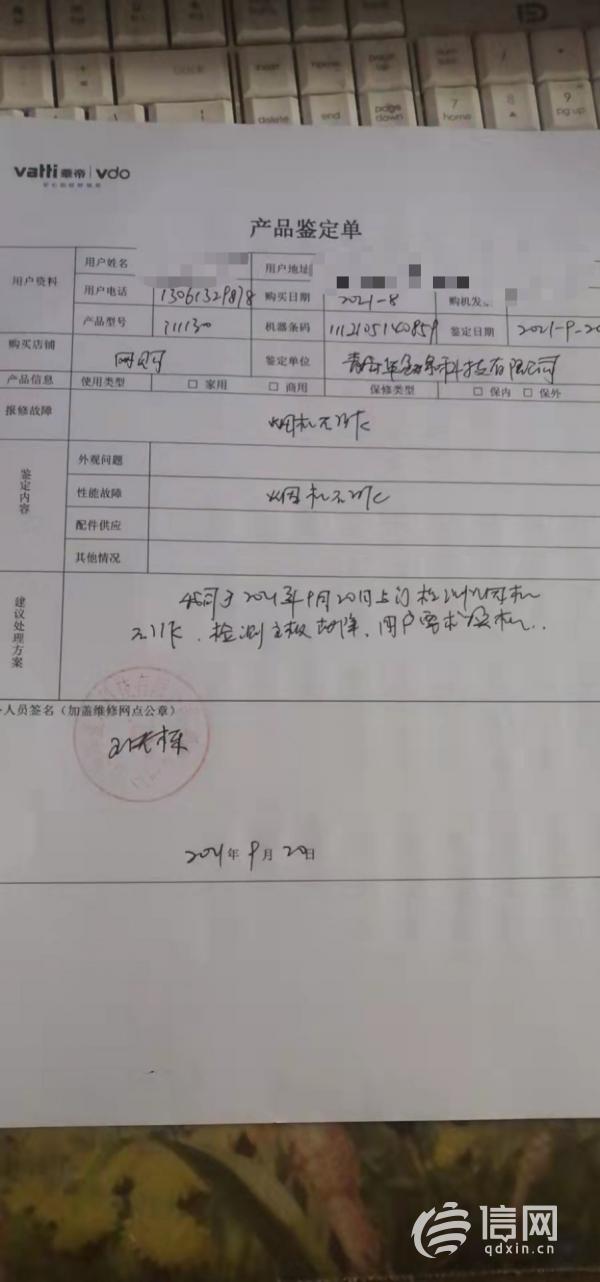 insert
home
delete
end
page down
7 home
8
9 pg up
vatti 華帝 | vdo
产品鉴定单
用户资料
用户姓名
用户地址
用户电话 13061329878 购买日期 2021-8
产品型号 i11130 机器条码 1112105140859 鉴定日期 2021-9-20
购买店铺 网购 鉴定单位 科技有限公司
产品信息 使用类型 □ 家用 □ 商用 保修类型 □ 保内 □ 保外
报修故障 烟机不工作
鉴定内容
外观问题
性能故障 烟机不工作
配件供应
其他情况
建议处理方案
我司于2021年9月20日上门检测烟机
不工作，检测主板故障，用户要求退机.
人员签名（加盖维修网点公章）
2021年 9月 20日
信网
qdxin.cn